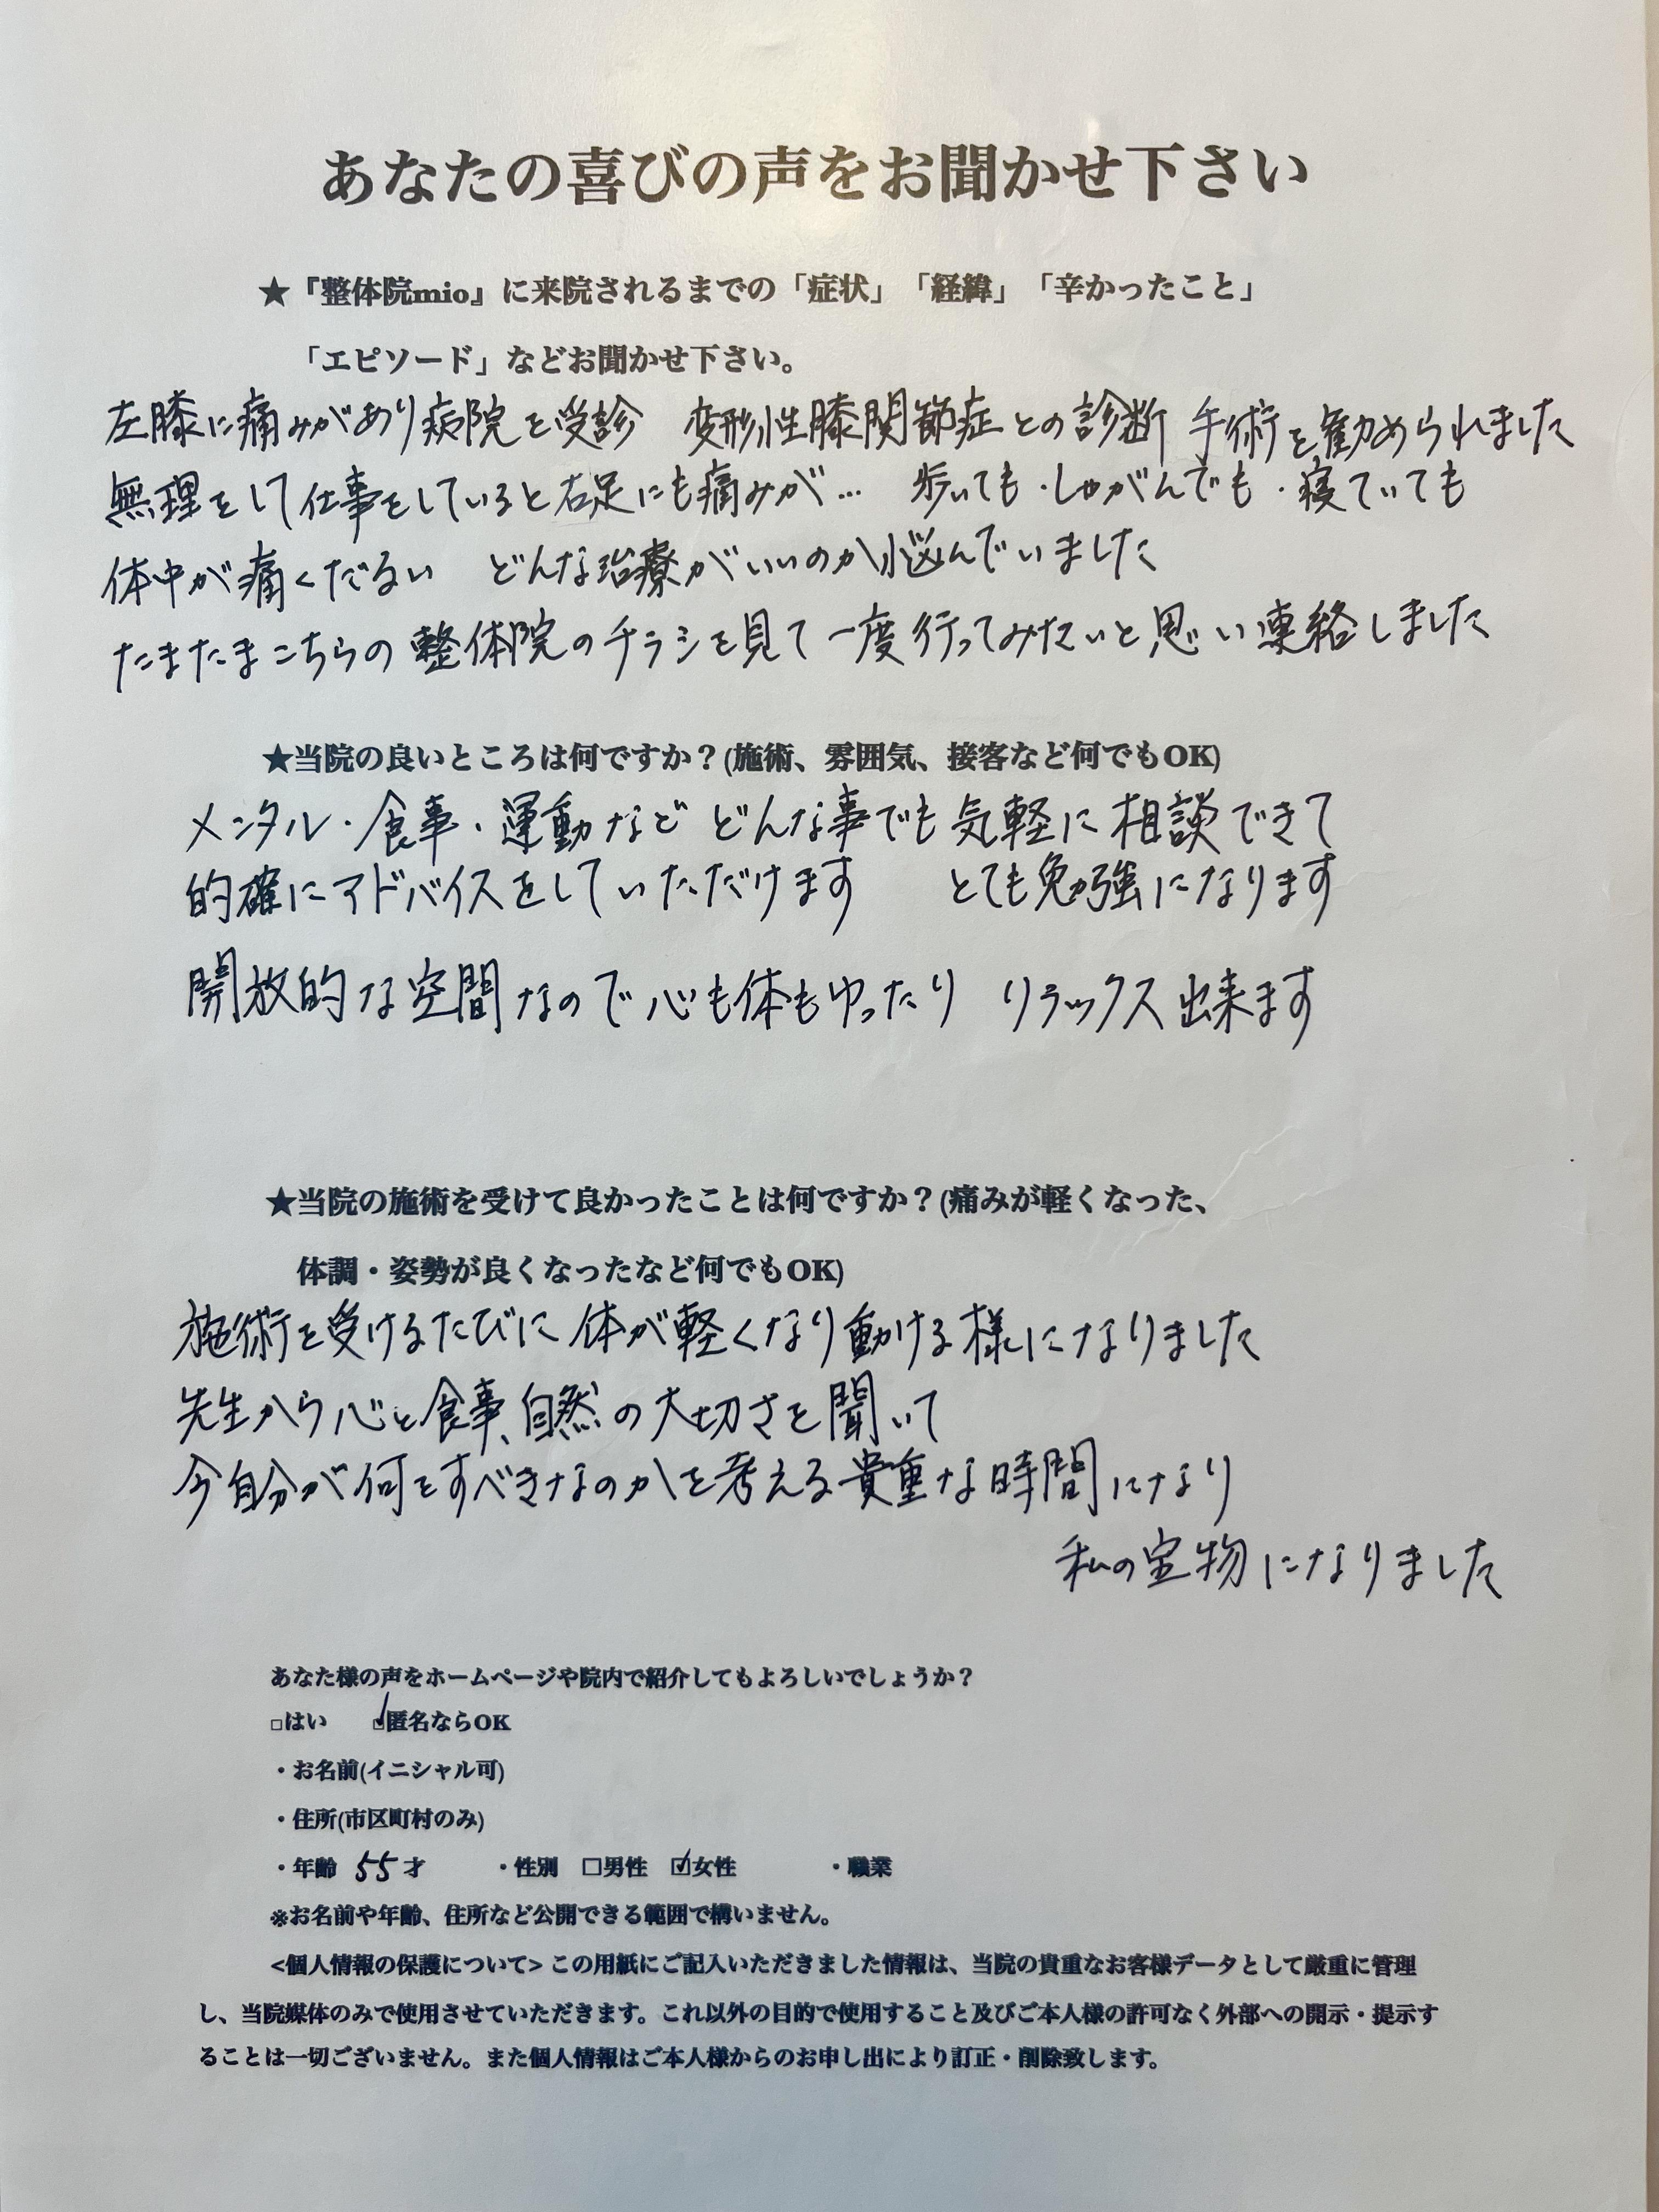 あなたの喜びの声をお聞かせ下さい
★『整体院mio』に来院されるまでの「症状」「経緯」「辛かったこと」
「エピソード」などお聞かせ下さい。
左膝に痛みがあり病院を受診　変形性膝関節症との診断 手術を勧められました
無理をして仕事をしていると右足にも痛みが… 歩いても・しゃがんでも・寝ていても
体中が痛くだるい　どんな治療がいいのか悩んでいました
たまたまこちらの整体院のチラシを見て一度行ってみたいと思い連絡しました
★当院の良いところは何ですか？(施術、雰囲気、接客など何でもOK)
メンタル・食事・運動など どんな事でも気軽に相談できて
的確にアドバイスをしていただけます　とても勉強になります
開放的な空間なので心も体もゆったり　リラックス出来ます
★当院の施術を受けて良かったことは何ですか？(痛みが軽くなった、
体調・姿勢が良くなったなど何でもOK)
施術を受けるたびに体が軽くなり動ける様になりました
先生から心と食事、自然の大切さを聞いて
今自分が何をすべきなのかを考える貴重な時間になり
私の宝物になりました
あなた様の声をホームページや院内で紹介してもよろしいでしょうか？
□はい　☑匿名ならOK
・お名前(イニシャル可)
・住所(市区町村のみ)
・年齢 55才　・性別 □男性 ☑女性　・職業
※お名前や年齢、住所など公開できる範囲で構いません。
<個人情報の保護について> この用紙にご記入いただきました情報は、当院の貴重なお客様データとして厳重に管理
し、当院媒体のみで使用させていただきます。これ以外の目的で使用すること及びご本人様の許可なく外部への開示・提示す
ることは一切ございません。また個人情報はご本人様からのお申し出により訂正・削除致します。